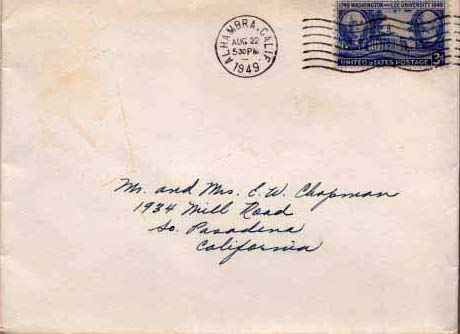 ALHAMBRA, CALIF.
AUG 22
5 30 PM
1949
1749 WASHINGTON AND LEE UNIVERSITY 1949
UNITED STATES POSTAGE 3¢
Mr. and Mrs. E. W. Chapman
1934 Mill Road
So. Pasadena
California